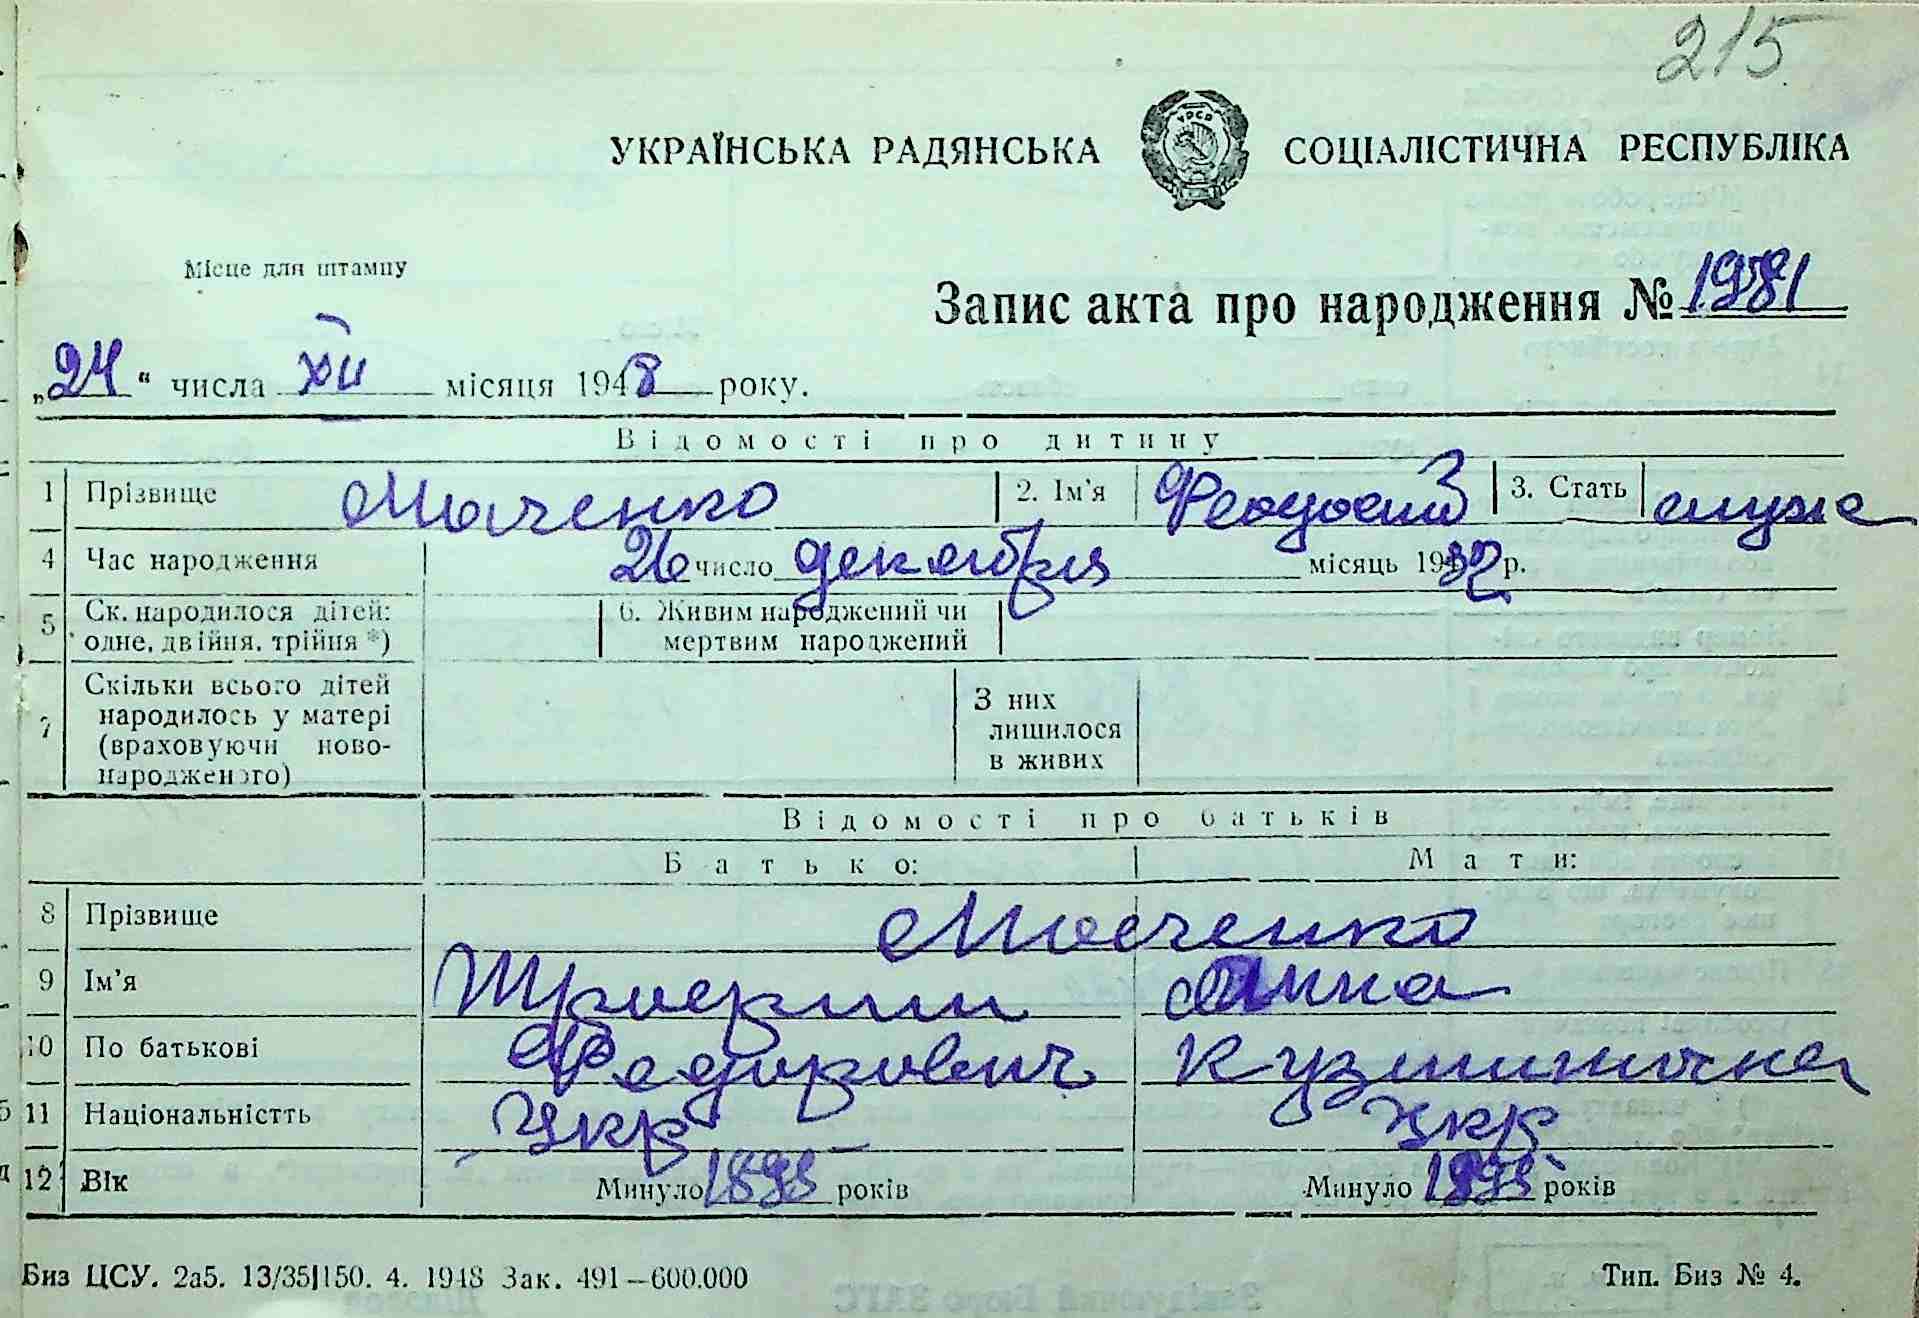 215
УКРАЇНСЬКА РАДЯНСЬКА СОЦІАЛІСТИЧНА РЕСПУБЛІКА
Місце для штампу
Запис акта про народження № 1981
„24“ числа XII місяця 1948 року.
Відомості про дитину
1 Прізвище Мовченко 2. Ім'я Феодосий 3. Стать муже
4 Час народження 26 число декабря місяць 1932 р.
5 Ск. народилося дітей: одне, двійня, трійня *) 6. Живим народжений чи мертвим народжений
7 Скільки всього дітей народилось у матері (враховуючи новонародженого) З них лишилося в живих
Відомості про батьків
Батько: Мати:
8 Прізвище Мовченко
9 Ім'я Анна
10 По батькові Федорович Кузминична
11 Національністть Укр Укр
12 Вік Минуло 1895 років Минуло 1895 років
Биз ЦСУ. 2а5. 13/35|150. 4. 1948 Зак. 491—600.000 Тип. Биз № 4.